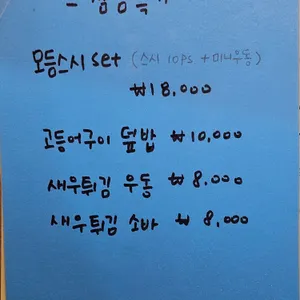 모듬스시 set (스시 10ps + 미니우동)
₩18,000
고등어구이 덮밥 ₩10,000
새우튀김 우동 ₩8,000
새우튀김 소바 ₩8,000